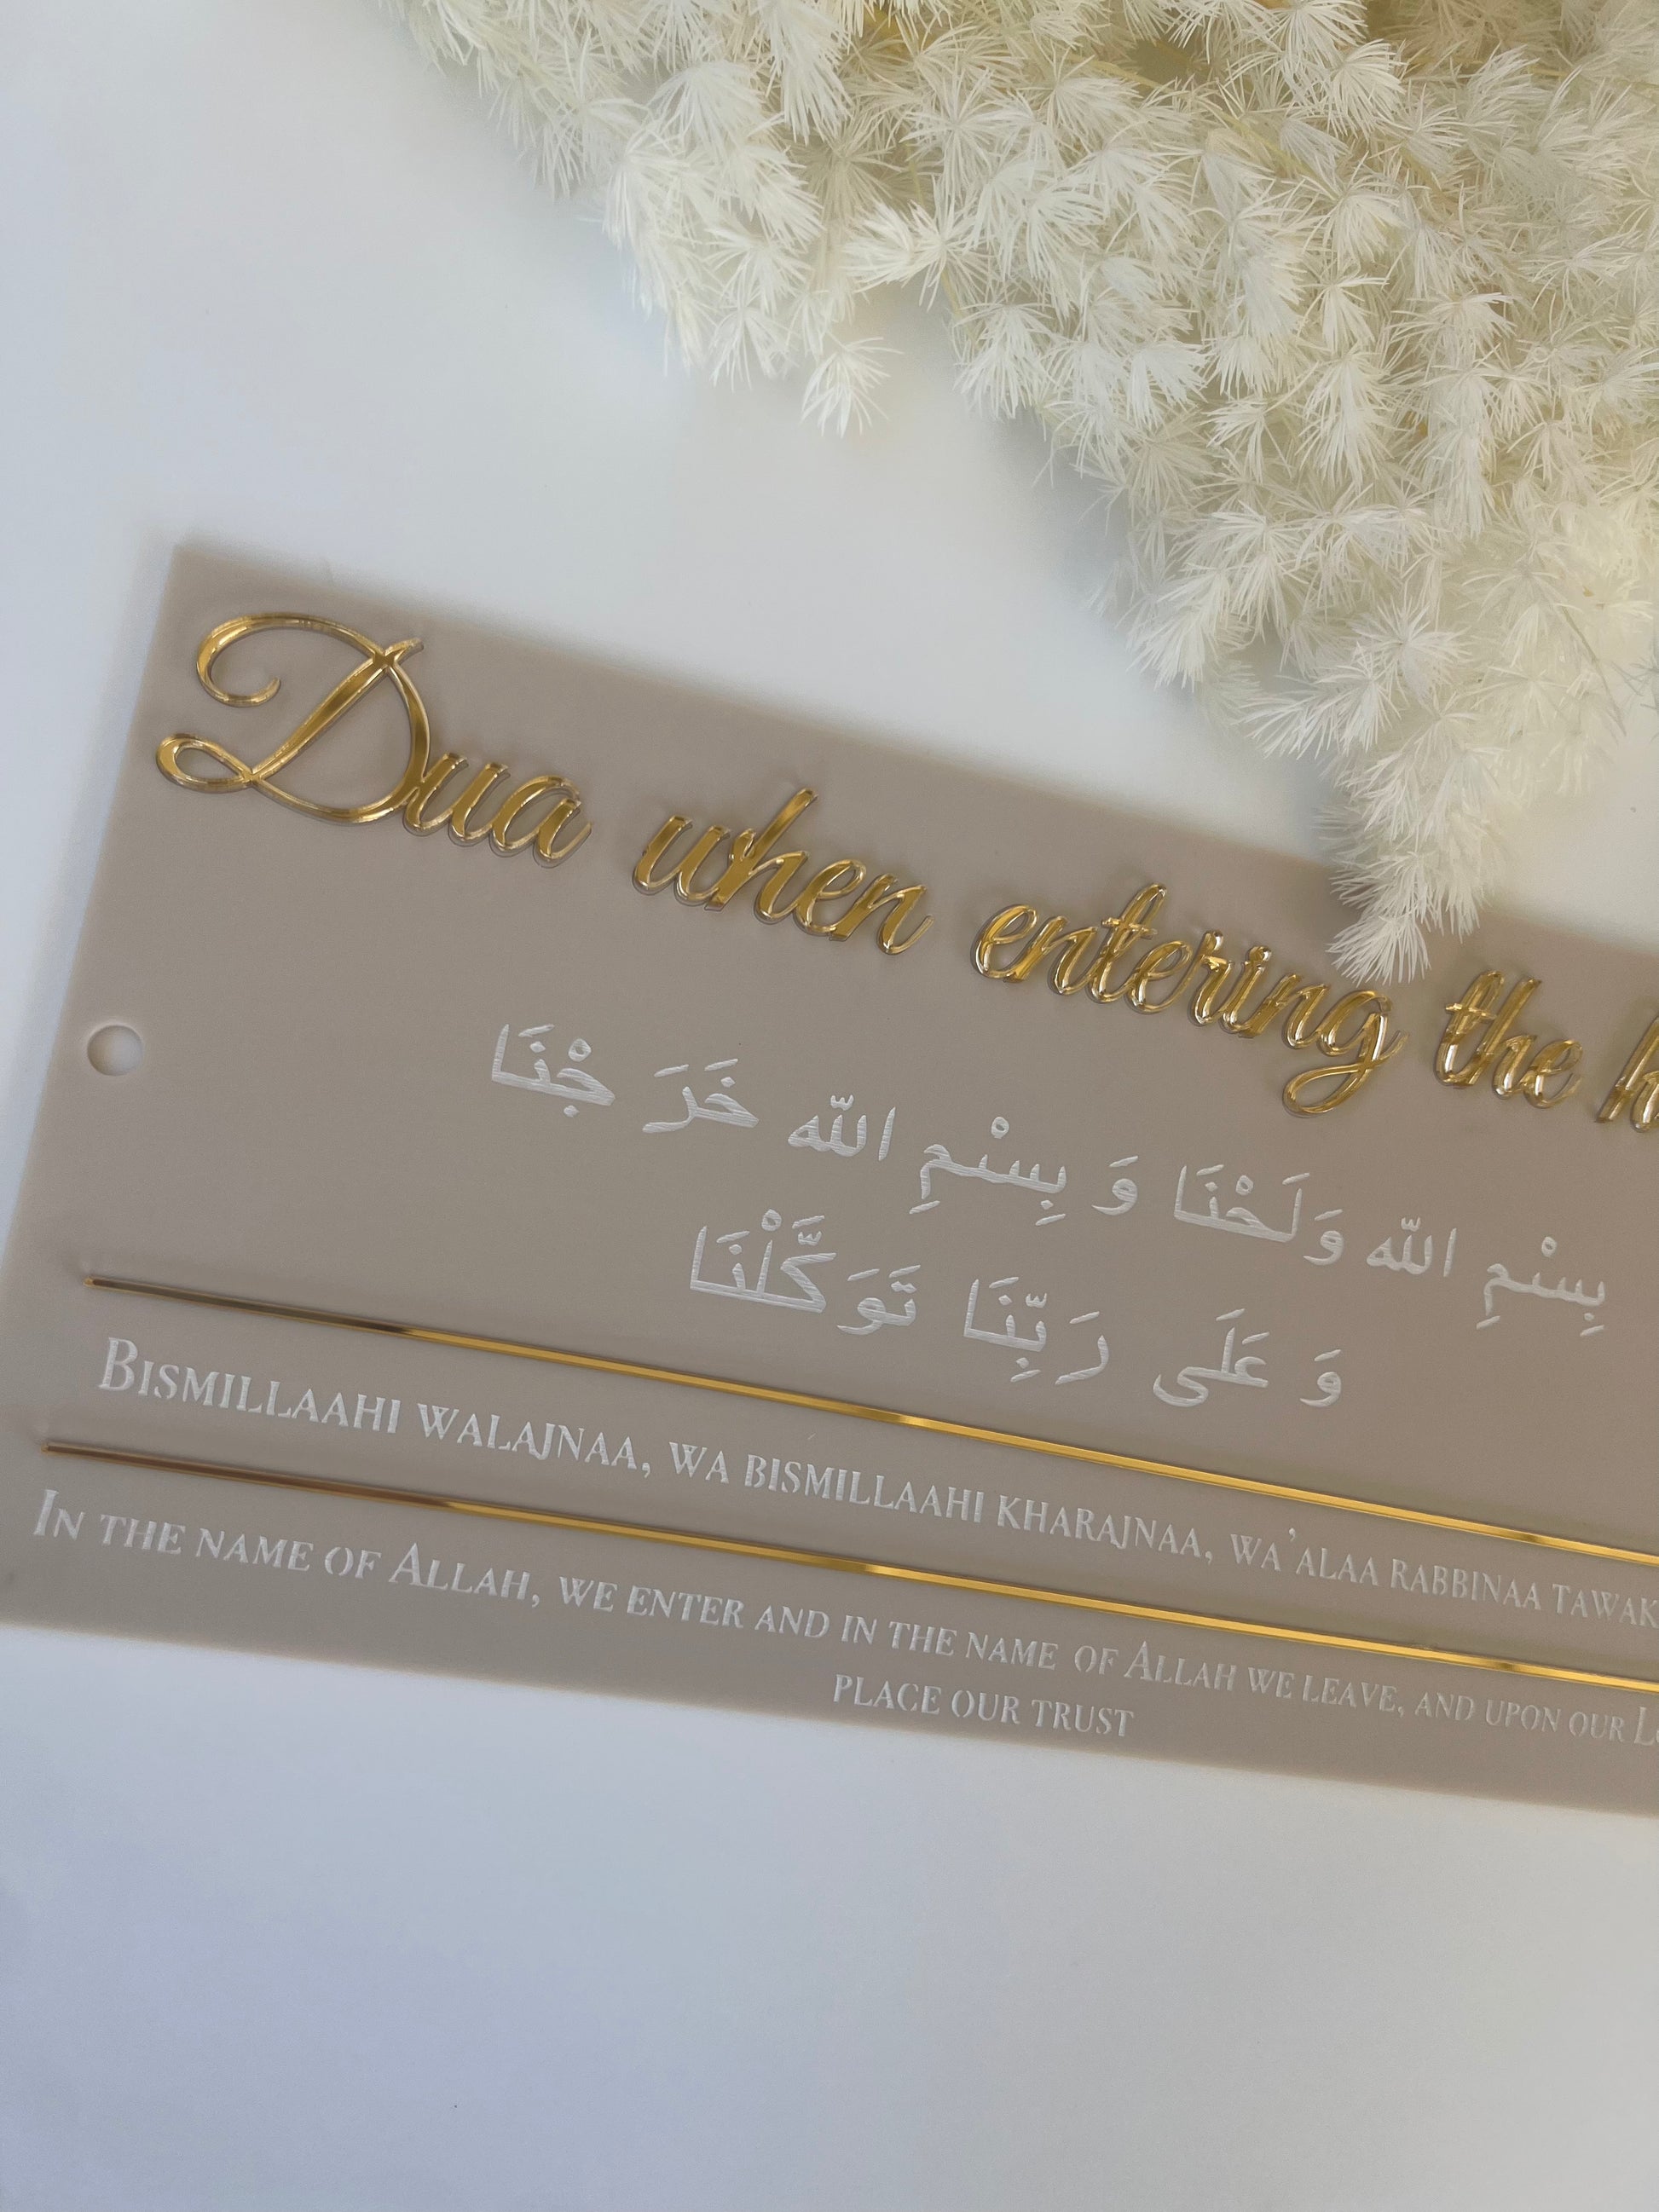 Dua when entering the
بِسْمِ الله وَلَحْنَا وَ بِسْمِ الله خَرَ جْنَا
وَ عَلَى رَبِّنَا تَوَكَّلْنَا
Bismillaahi walajnaa, wa bismillaahi kharajnaa, wa'alaa rabbinaa tawak
In the name of Allah, we enter and in the name of Allah we leave, and upon our
place our trust